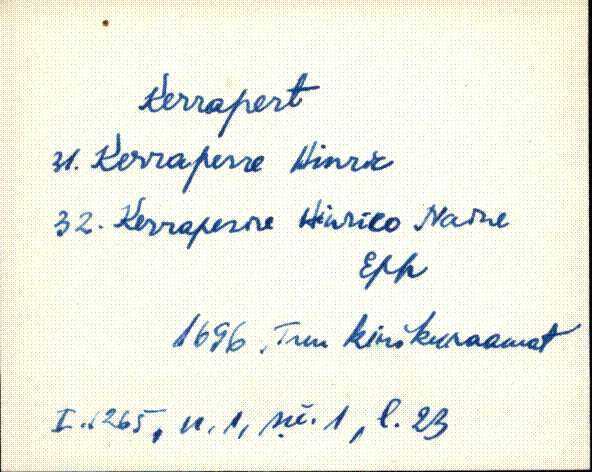 Kerrapert
31. Kerraperre Hinrix
32. Kerraperre Hinrico Naine
Epp
1696. kirikuraamat
I. 1265, n. 1, 1, l. 23